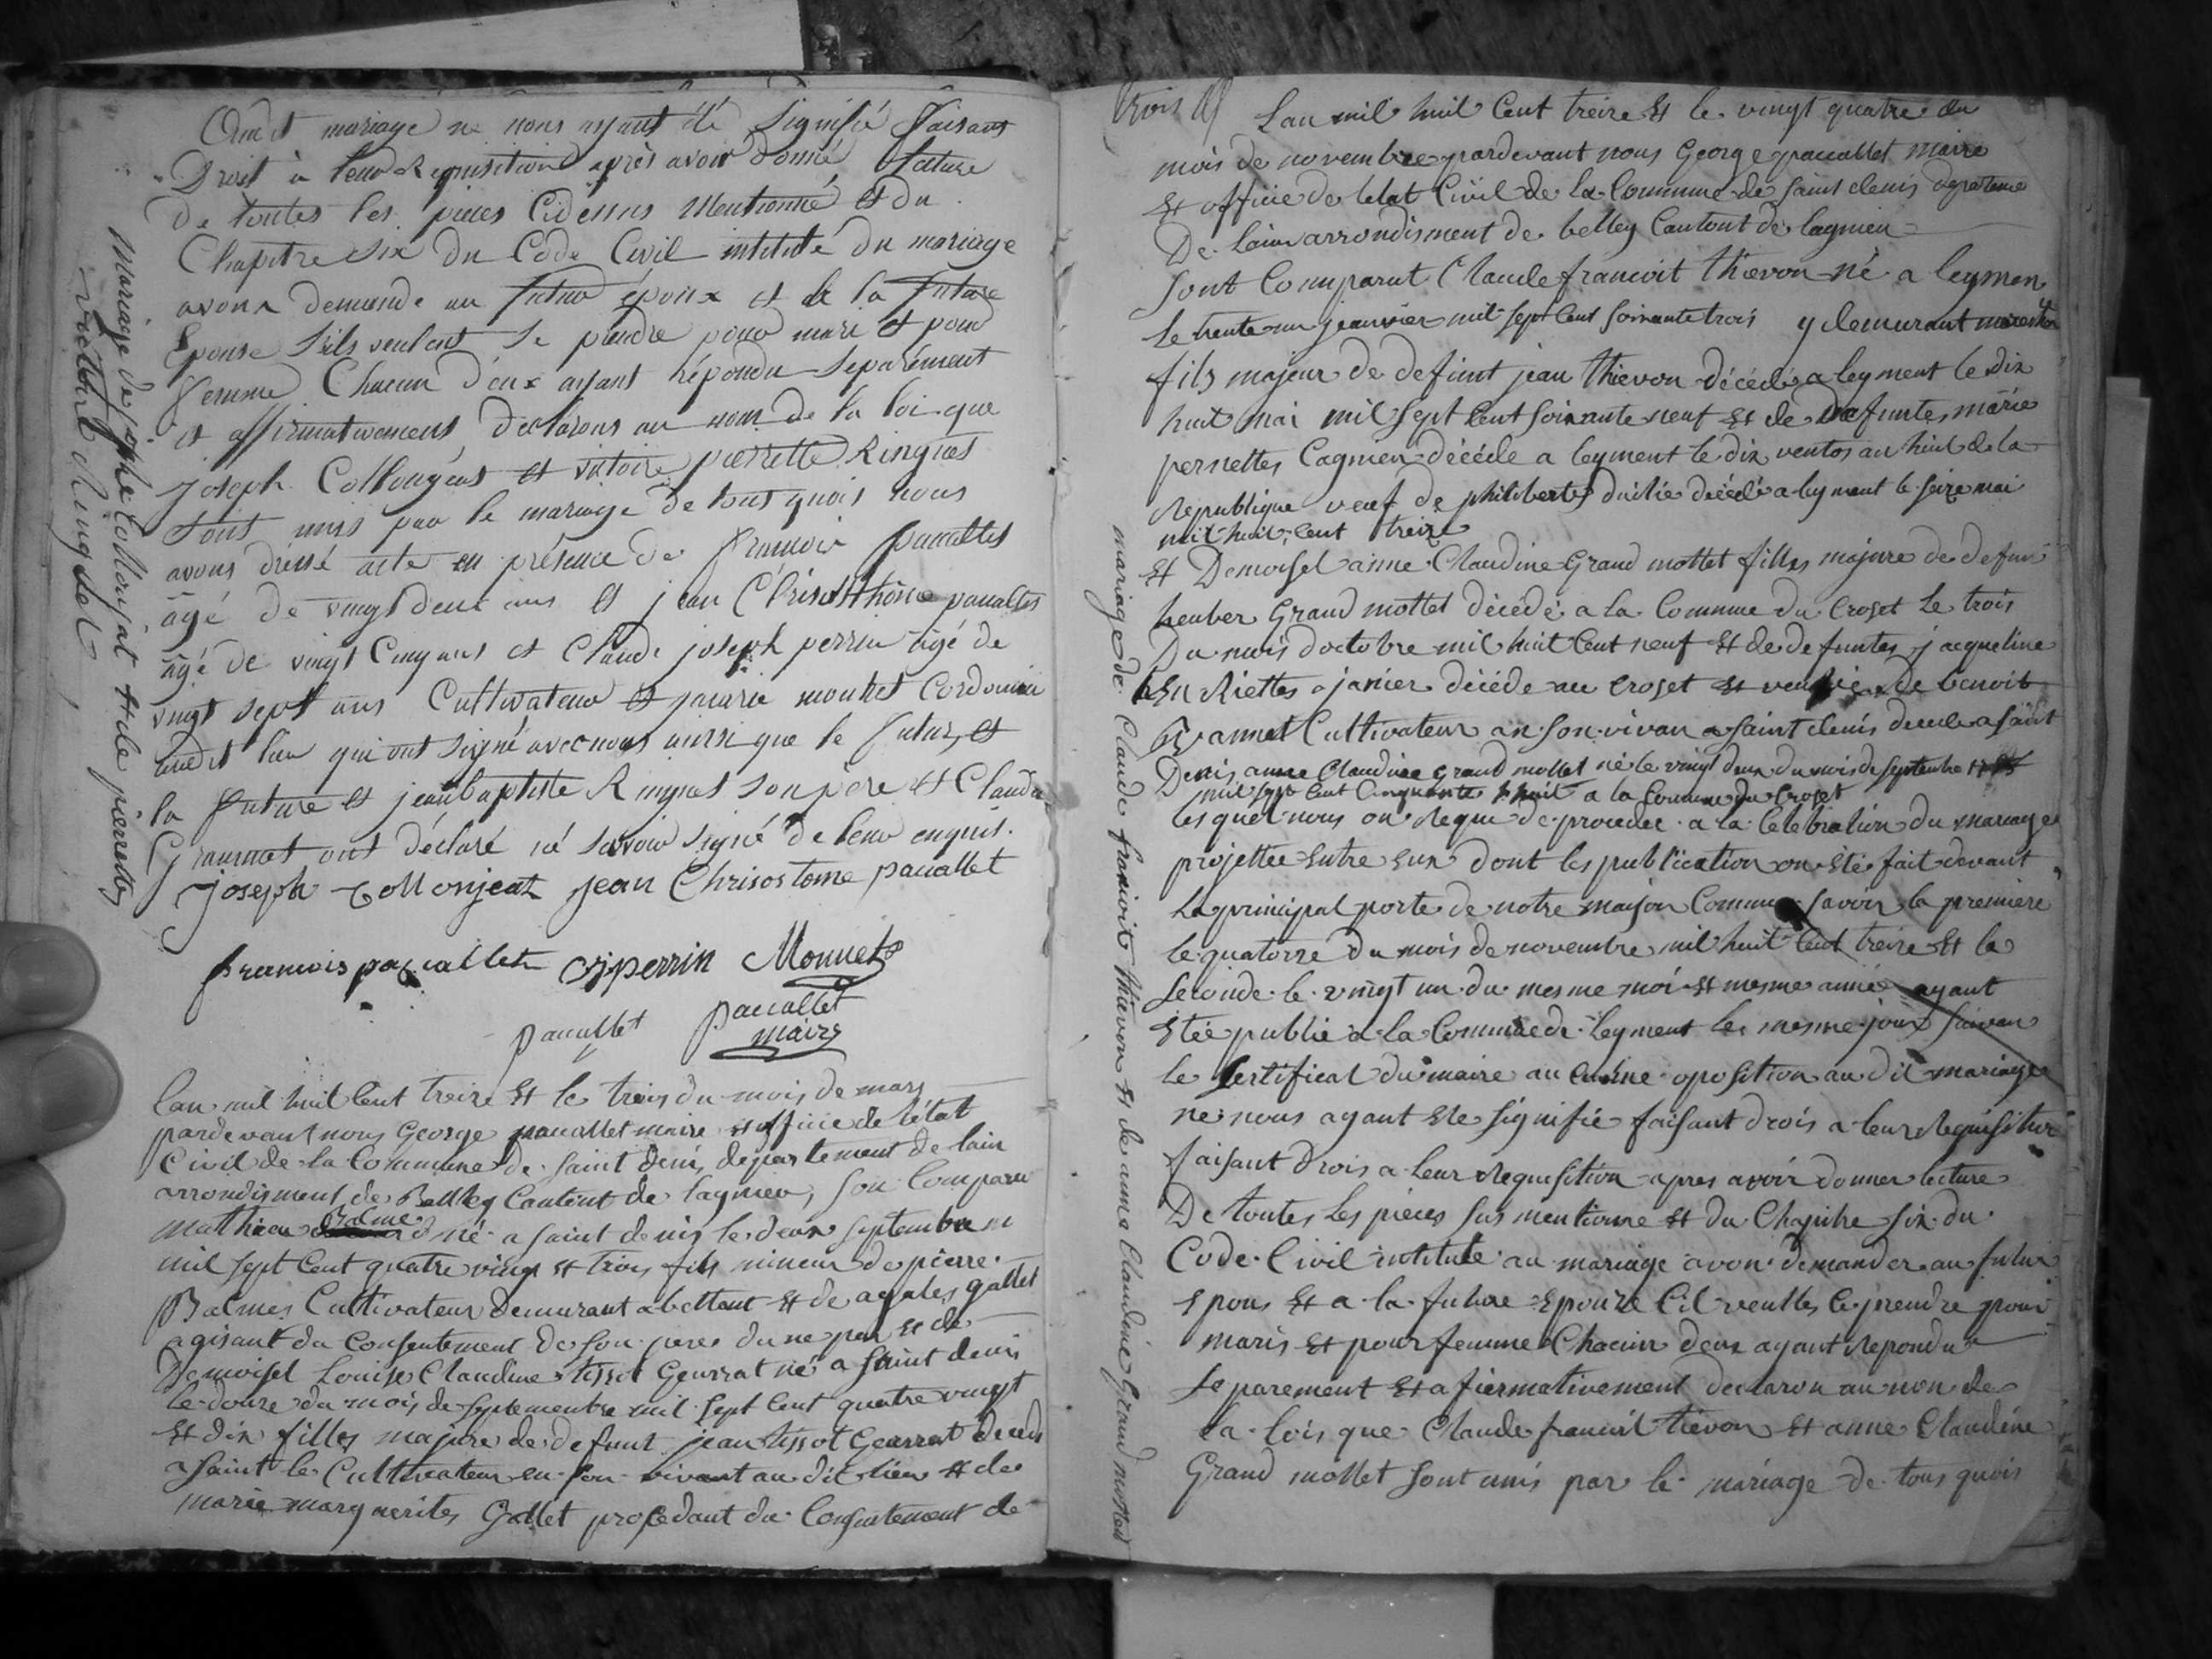 Audit mariage ne nous ayant été Signifié faisant
Droit à leur Requisition après avoir donné lecture
De toutes les pieces Cidessus Mentionné et du
Chapitre six du Code Civil intitulé du mariage
avons demandé au futur époux et de la future
Epouse s'ils veulent se prendre pour mari et pour
femme Chacun d'eux ayant répondu separément
et affirmativement Declarons au nom de la loi que
Joseph Collougeat et victoire pierrette Ringuet
sont unis par le mariage de tout quois nous
avons dressé acte en présence de francois paccallet
âgé de vingt deux ans et jean Chrisosthome paccallet
âgé de vingt Cinq ans et Claude joseph perrin âgé de
vingt sept ans Cultivateur et monnet Cordonnier
dudit lieu qui ont signé avec nous ainsi que le futur, et
la future et jean baptiste Ringuet son père et Claudine
ont déclaré né savoir signé de leur enquis.
joseph Collonjeat jean Chrisostome paccallet
francois paccallet Cjperrin Monnet
paccallet paccallet
maire
Mariage de joseph Collonjat et de pierrette
victoire Ringuet
lan mil huit Cent treize et le trois du mois de mars
pardevant nous George paccallet maire et officié de létat
Civil de la Commune de saint denis departement de lain
arrondisment de Belley Cantont de lagnieu, son Comparu
Mathieu Balme né a saint denis le deux septembre
mil sept Cent quatre vingt et trois fils mineur de pierre
Balmes Cultivateur demurant abettant et de agates gallet
agisant du Consentement de son pere dune part et de
Demoisel Louise Claudine tissot Geurrat né a saint denis
le douze du mois de septembre mil sept Cent quatre vingt
et dix filles majure de defunt jean tissot Geurrat deced
a saint le Cultivateur en son vivant au dit lieu et de
marie marguerites Gallet profedant du Consentement de
trois
Lan mil huil Cent treize et le vingt quatre du
mois de novembre pardevant nous George paccallet maire
et officié de letat Civil de la Commune de saint denis
De lain arrondisment de belley Cantont de lagnieu
sont Comparut Claude francoit thievon né a leymen
le trente un jeanvier mil sept Cens soixante trois y demurant
fils majeur de defunt jean thievon décédé a leyment le dix
huit mai mil sept Cent soixante neuf et de defuntes marie
pernettes Cagnien décéde a leyment le dix ventos an huit de la
Republique veuf de philiberte décédé a leyment le seize mai
mil huit Cent treize
et Demoisel anne Claudine Grand mottet filles majure de defun
heuber Grand mottet décédé a la Commune du Croset le trois
Du mois doctobre mil huit Cent neuf et de defuntes jacqueline
janier décéde au Croset et de benoit
Cultivateur an son vivan a saint denis decede a saint
Denis anne Claudine Grand mottet né le vingt deux du mois de septembre
mil sept Cent Cinquante huit a la Commune du Croset
les quel nous on Requi de proceder a la celebration du mariage
projettée entre eux dont les publication on été fait devant
La principal porte de notre maison Commune savoir la premiere
le quatorze du mois de novembre mil huit Cent treize et la
seconde le vingt un du mesme moi et mesme année ayant
etée publié a la Commune de leyment les mesme jour suivan
le Sertificat du maire au Cunne oposition au dit mariage
ne nous ayant ete signifié faisant drois a leur Requisition
faisant drois a leur Requisition apres avoir donner lecture
De toutes les pieces sus mentionne et du Chapitre six du
Code Civil intitule au mariage avon demander au futur
epous et a la future epouze Cil veulles le prendre pour
maris et pour femme Chacun deux ayant Repondu
Separement et afiermativement declaron au non de
la lois que Claude francoit tievon et anne Claudine
Grand mottet sont unis par le mariage de tous quois
mariage de Claude francoit thievon et de anne Claudine Grand mottet